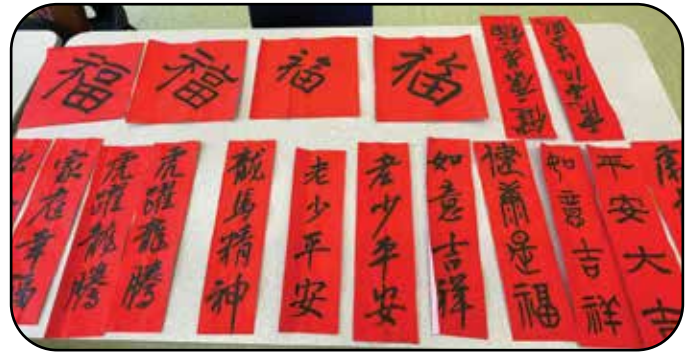 福
福
福
福
健康是福
家庭幸福
虎躍龍騰
虎躍龍騰
龍馬精神
老少平安
老少平安
如意吉祥
健康是福
如意吉祥
平安大吉